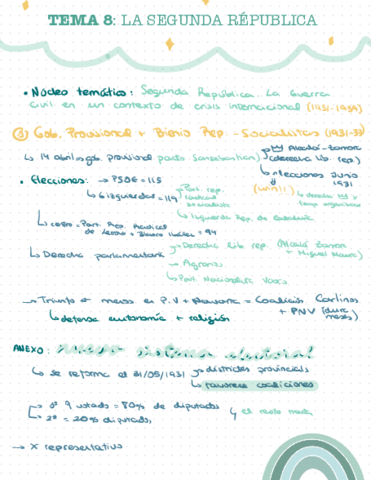 TEMA 8: LA SEGUNDA RÉPUBLICA
• Núcleo temático: Segunda República. La Guerra
civil en un contexto de crisis internacional (1931-1939)
Gob. Provisional + Bienio Rep. - Socialistas (1931-33)
↳ 14 abril gob. provisional pacto Sansebastian
Alcalá-Zamora
(derecha lib. rep.)
elecciones Junio
1931
• Elecciones: → PSOE = 115
↳ 6 izquierdas = 114
Part. rep.
radical
socialista
Izquierda Rep. de
↳ centro = Part. Rep. Radical
de Lerroux + = 94
↳ Derecha parlamentaria
Derecha Lib rep. (Alcalá Zamora
+ Miguel Maura)
↳ Agrarios
↳ Part. Nacionalista Vasco
→ Triunfo en P.V + Navarra = Coalición Carlinos
+ PNV
↳ defensa autonomía + religión
ANEXO: sistema electoral
↳ se reforma el 31/05/1931 distritos provinciales
↳ favorece coaliciones
votado = 80% de diputados
2º = 20% diputados
el resto nada
→ X representativo